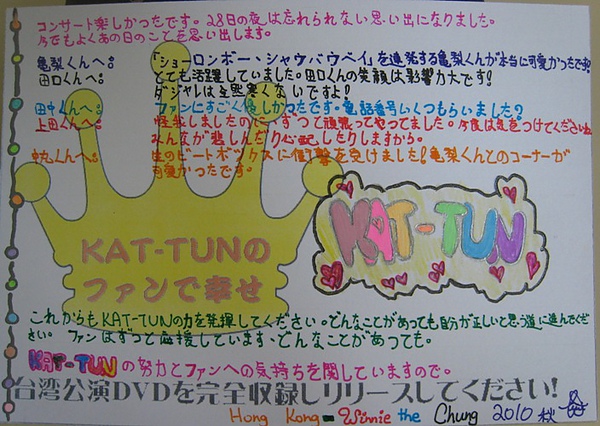 コンサート楽しかったです。28日の夜は忘れられない思い出になりました。
今でもよくあの日のことを思い出します。
亀梨くんへ。 「ショーロンポー、シャウパウペイ」を連発する亀梨くんが本当に可愛かったです!
田口くんへ。 とても活躍していました。田口くんの笑顔は影響力大です!
ダジャレは全然寒くないですよ!
田中くんへ。 ファンにすごく優しかったです。電話番号いくつもらいました?
上田くんへ。 怪我しましたのに、ずっと頑張ってやってました。今度は気をつけてくださいね
みんなが悲しんだり心配したりしますから。
中丸くんへ。 生のビートボックスに衝撃を受けました!亀梨くんとのコーナーが
可愛かったです。
KAT-TUNの
ファンで幸せ
KAT-TUN
これからもKAT-TUNの力を発揮してください。どんなことがあっても自分が正しいと思う道に進んでくだ
さい。ファンはずっと応援しています、どんなことがあっても。
KAT-TUNの努力とファンへの気持ちを関していますので。
台湾公演DVDを完全収録しリリースしてください!
Hong Kong - Winnie the Chung 2010 秋